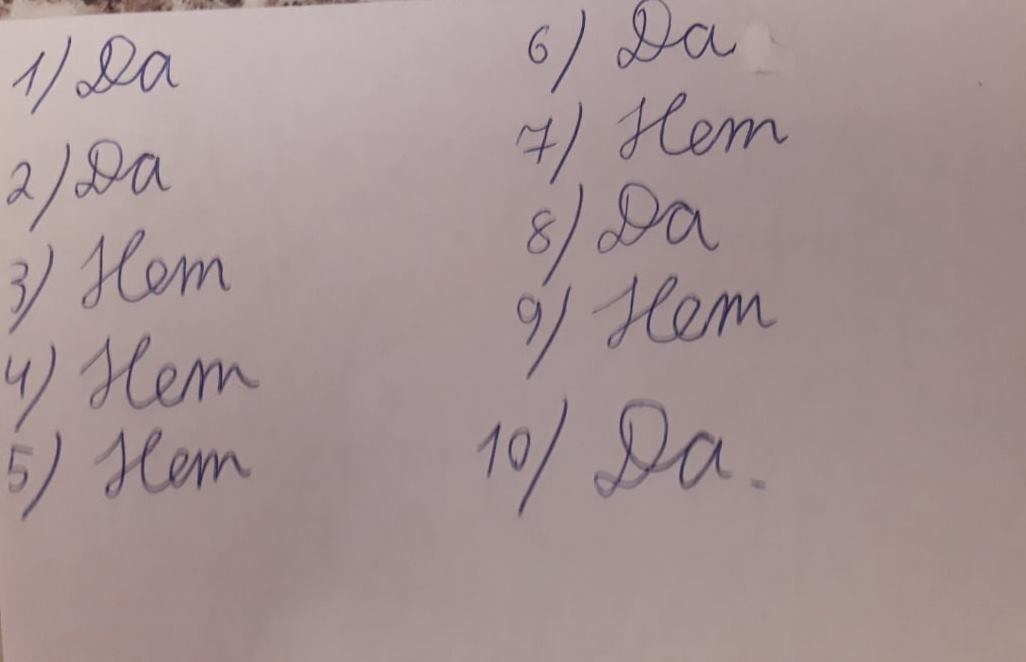 1) Да
2) Да
3) Нет
4) Нет
5) Нет
6) Да
7) Нет
8) Да
9) Нет
10) Да.